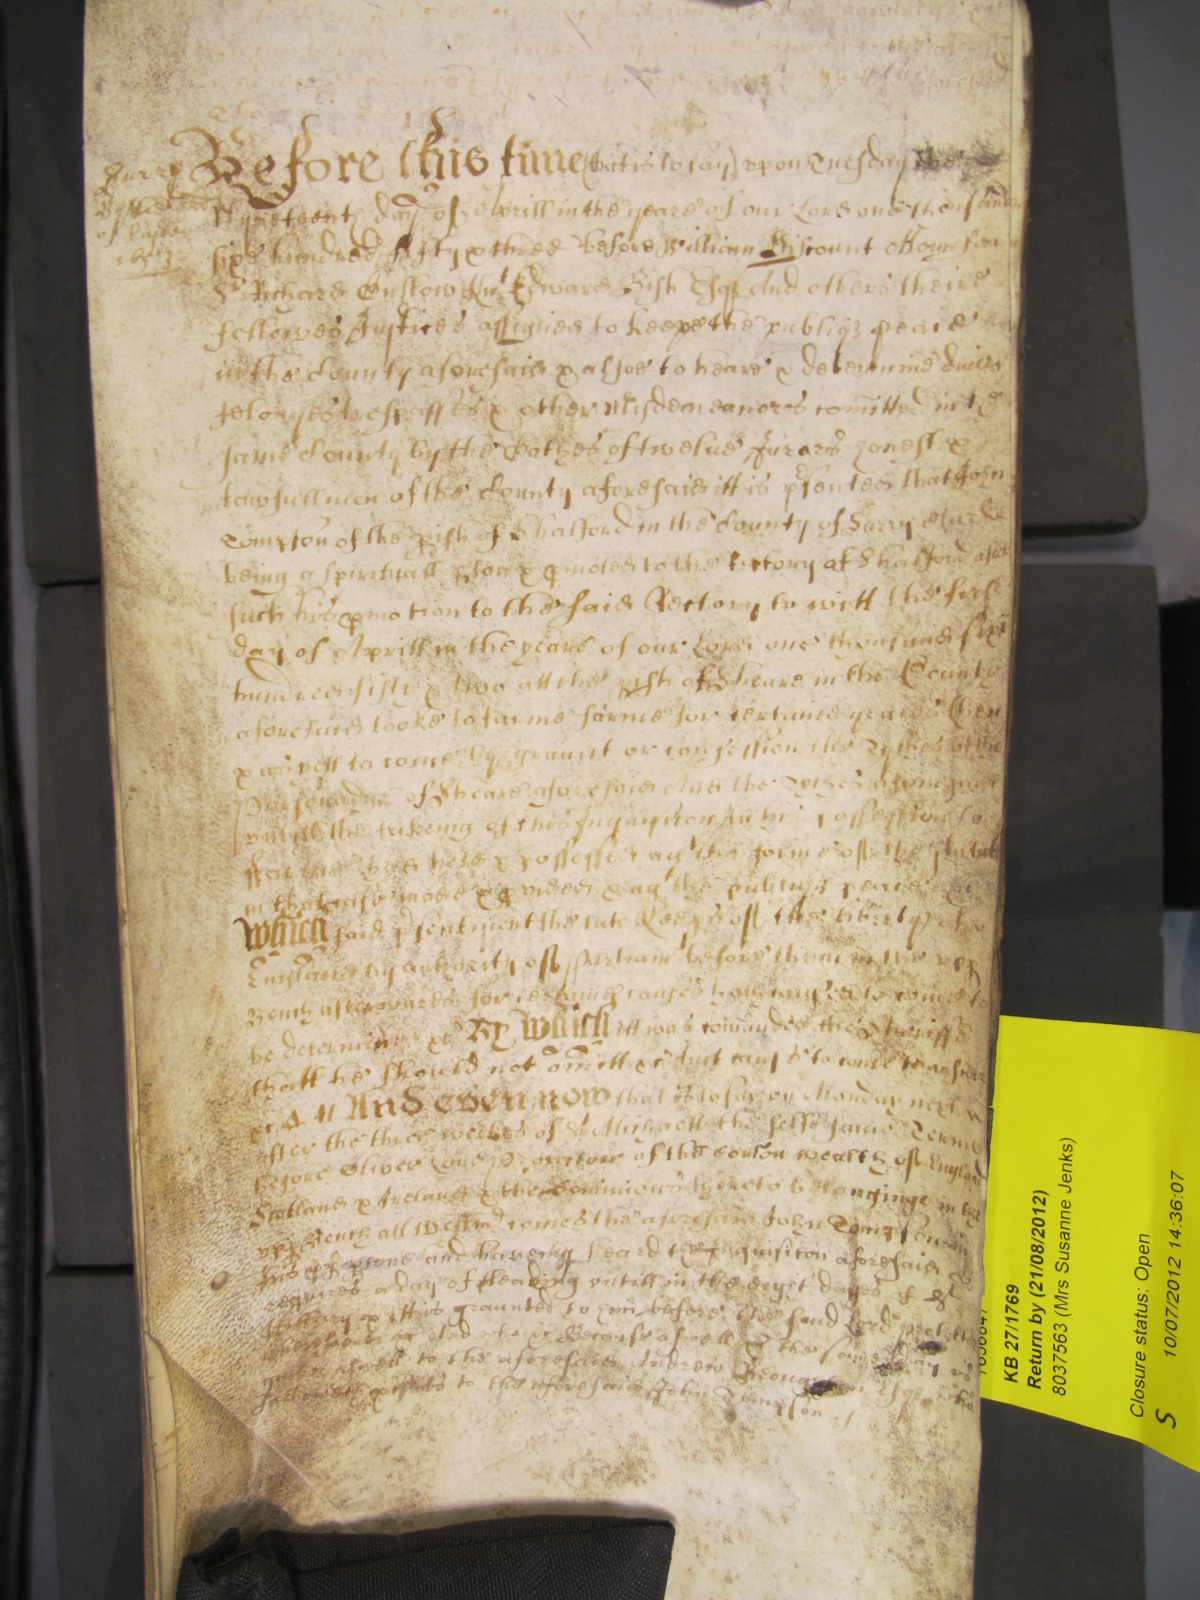 Surry
Before this time (that is to say) upon Tuesday the
Nyneteenth day of Aprill in the yeare of our Lord one thousand
sixe hundred fifty & three before William Viscount Mounson
Sr Richard Onslow Knt Edward Bish Esqr And others theire
fellowes Justices assigned to keepe the publiq peace
in the County aforesaid & alsoe to heare & determine divers
felonyes trespasses & other Misdemeanors comitted in the
same County by the Oathes of twelve Jurors honest &
lawfull men of the County aforesaid itt is psented that John
Tompson of the pish of Shalford in the County of Surry Clerke
being a spirituall pson & pmoted to the Rectory of Shalford after
such his pmotion to the said Rectory to witt the first
day of Aprill in the yeare of our Lord one thousand sixe
hundred fifty & two att the pish of Sheare in the County
aforesaid tooke to farme for certaine yeares then
& yett to come by graunt or concession the Tythes of the
Parsonadge of Sheare aforesaid And the Tythes
untill the takeing of this Inquisition in his possession to
farme had held & possessed agt the forme of the statute
in that case made & pvided & agt the publiq peace &c
Which said psentment the late Keeps of the liberty of
England by authority of Parliamt before them in the upp
Bench afterwards for certaine causes have caused to come to
be determined &c By which itt was comanded the Sheriffe
thatt he should not omitt &c butt cause to come to answere
&c And even now that is to say on Monday next
after the three weekes of St Michaell the selfe same Terme
before Oliver Lord Protector of the Comon wealth of England
Scotland & Ireland & the Dominions thereto belonginge in the
upp Bench att Westmr comes the aforesaid John Tompson in
his pp psone and haveing heard the Inquisicon aforesaid
requires a day of pleading untill in the eight dayes of St
Hillary & itt is graunted to him before the said Lord Protector
And the Because as well the same day is
as well to the aforesaid Andrew Esqr who
to the aforesaid John Tompson
KB 27/1769
Return by (21/08/2012)
8037563 (Mrs Susanne Jenks)
Closure status: Open
S 10/07/2012 14:36:07